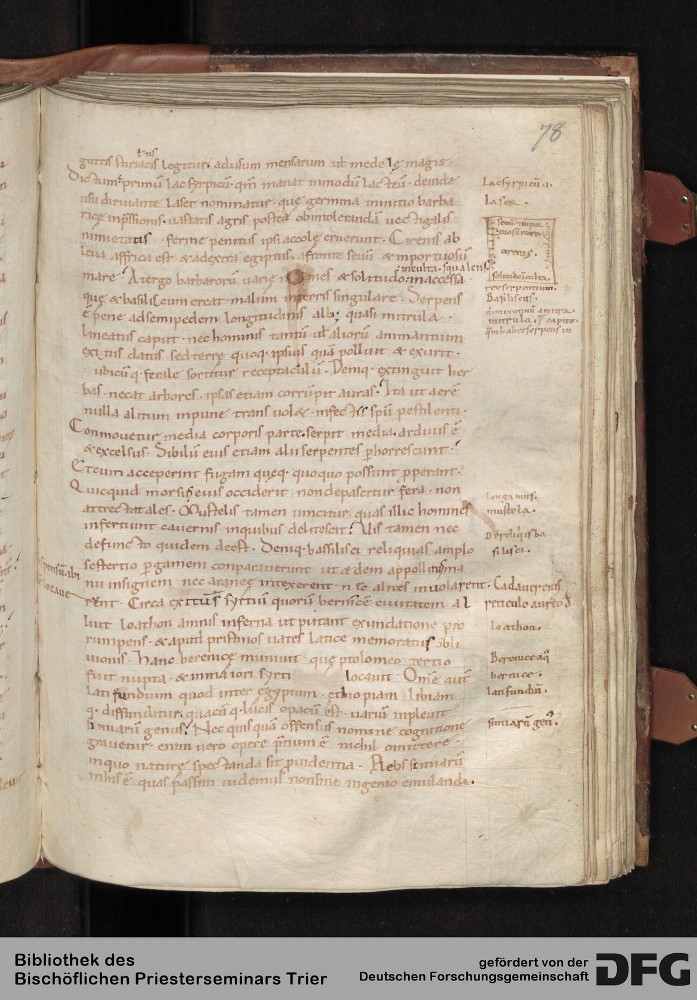 78
guttis legitur. adusum mensarum ut medelę magis.
Dictum primu lac syrpicu. qm manat inmodu lacteu. deinde
usu diriuante laser nominatur. quę germina initio barba
ricę impssionis. uastatis agris postea obintoleranda uectigalis
nimietatis. ferme penitus ipsi accolę eruerunt. Cirenis ab
leua affrica est. & adextra egiptus. afronte seuu. & inportuosu
inculta. squalens.
mare. Atergo barbaroru uarię nationes & solitudo. inaccessa
quę & basiliscum creat malum interris singulare. Serpens
ē pene adsemipedem longitudinis alba quasi mitrula
lineatus caput. nec hominis tantu ut alioru animantium
exitiis datus sed terrę quoq. ipsius qua polluit & exurit.
ubicu q. ferale sortitus receptaculu. Deniq. extinguit her
bas. necat arbores. ipsas etiam corrupit auras. Ita ut aere
nulla alitum inpune trans uol&. infecti spu pestilenti.
Conmouetur media corporis parte. serpit media. arduus ē
& excelsus. Sibilu eius etiam alii serpentes phorrescunt.
Etcum acceperint fugam quęq. quoquo possunt pperant.
Quicquid morsu eius occiderit non depascitur fera. non
attrectat ales. Mustelis tamen uincitur quas illic homines
inferciunt cauernis inquibus delitescit. Uis tamen nec
defuncto quidem deest. Deniq. basilisci reliquias amplo
sestertio pergameni conparauerunt ut ędem
nu insignem nec araneę intexerent n ec alites inuolarent.
Circa syrtiu quoru bernicę ciuitatem al
luit loathon amnis inferna ut putant exundatione pro
rumpens. & aput pristinos uates latice memoratus obli
uionis. Hanc berenicę muniuit. quę ptolomeo tertio
fuit nupta. & inmaiori syrti locauit. Omē aut
lati fundium quod inter egyptum. ethiopiam. libiam
q. diffunditur. quacu q. lucis opacu est. uariu inpleuit
simiaru genus. Nec quisqua offensus nomine cognitione
grauetur. enim uero opere ptium ē nichil omittere.
inquo naturę spectanda sit puidentia.
inhis ē. quas passim uidemus non sine ingenio emulandi.
Lac syrpicu.
laser.
cirenis.
Basiliscus.
mustela.
Dereliqis ba
silisci.
Cadauer eius
reticulo aureo
loathon.
Berenice
bernice.
latifundiu.
simiaru gen.
Bibliothek des
Bischöflichen Priesterseminars Trier
gefördert von der
Deutschen Forschungsgemeinschaft
DFG